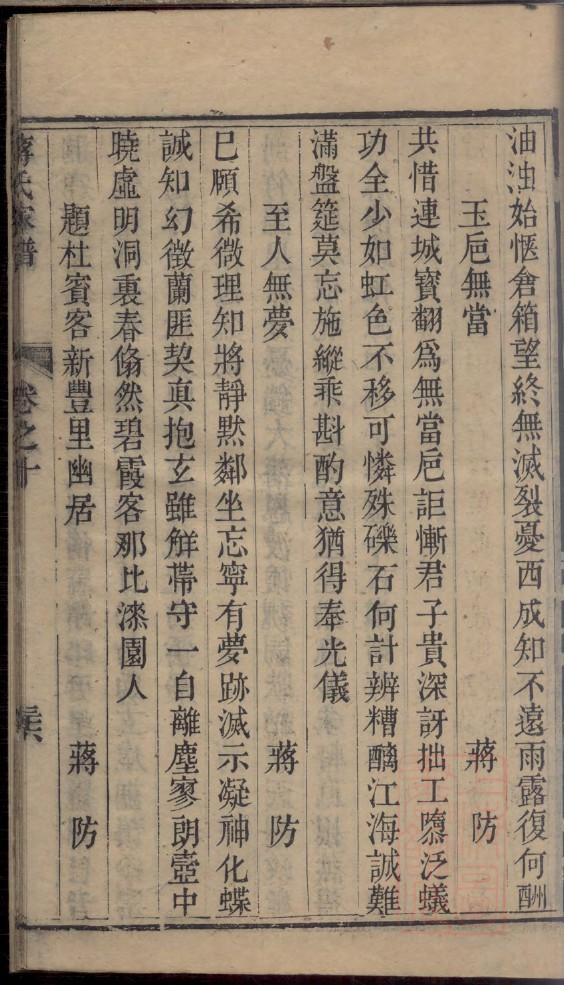 油油始愜倉箱望終無滅裂憂西成知不遠雨露復何酬
玉巵無當 蔣防
共惜連城寶翻爲無當巵詎慚君子貴深訝拙工隳泛蟻
功全少如虹色不移可憐殊礫石何計辨糟醨江海誠難
滿盤筵莫忘施縱乖斟酌意猶得奉光儀
至人無夢 蔣防
已願希微理知將靜默鄰坐忘寧有夢跡滅示凝神化蝶
誠知幻徵蘭匪契真抱玄雖觧帶守一自離塵寥朗壺中
曉虛明洞裏春翛然碧霞客那比漆園人
題杜賓客新豐里幽居 蔣防
蔣氏家譜 卷之十